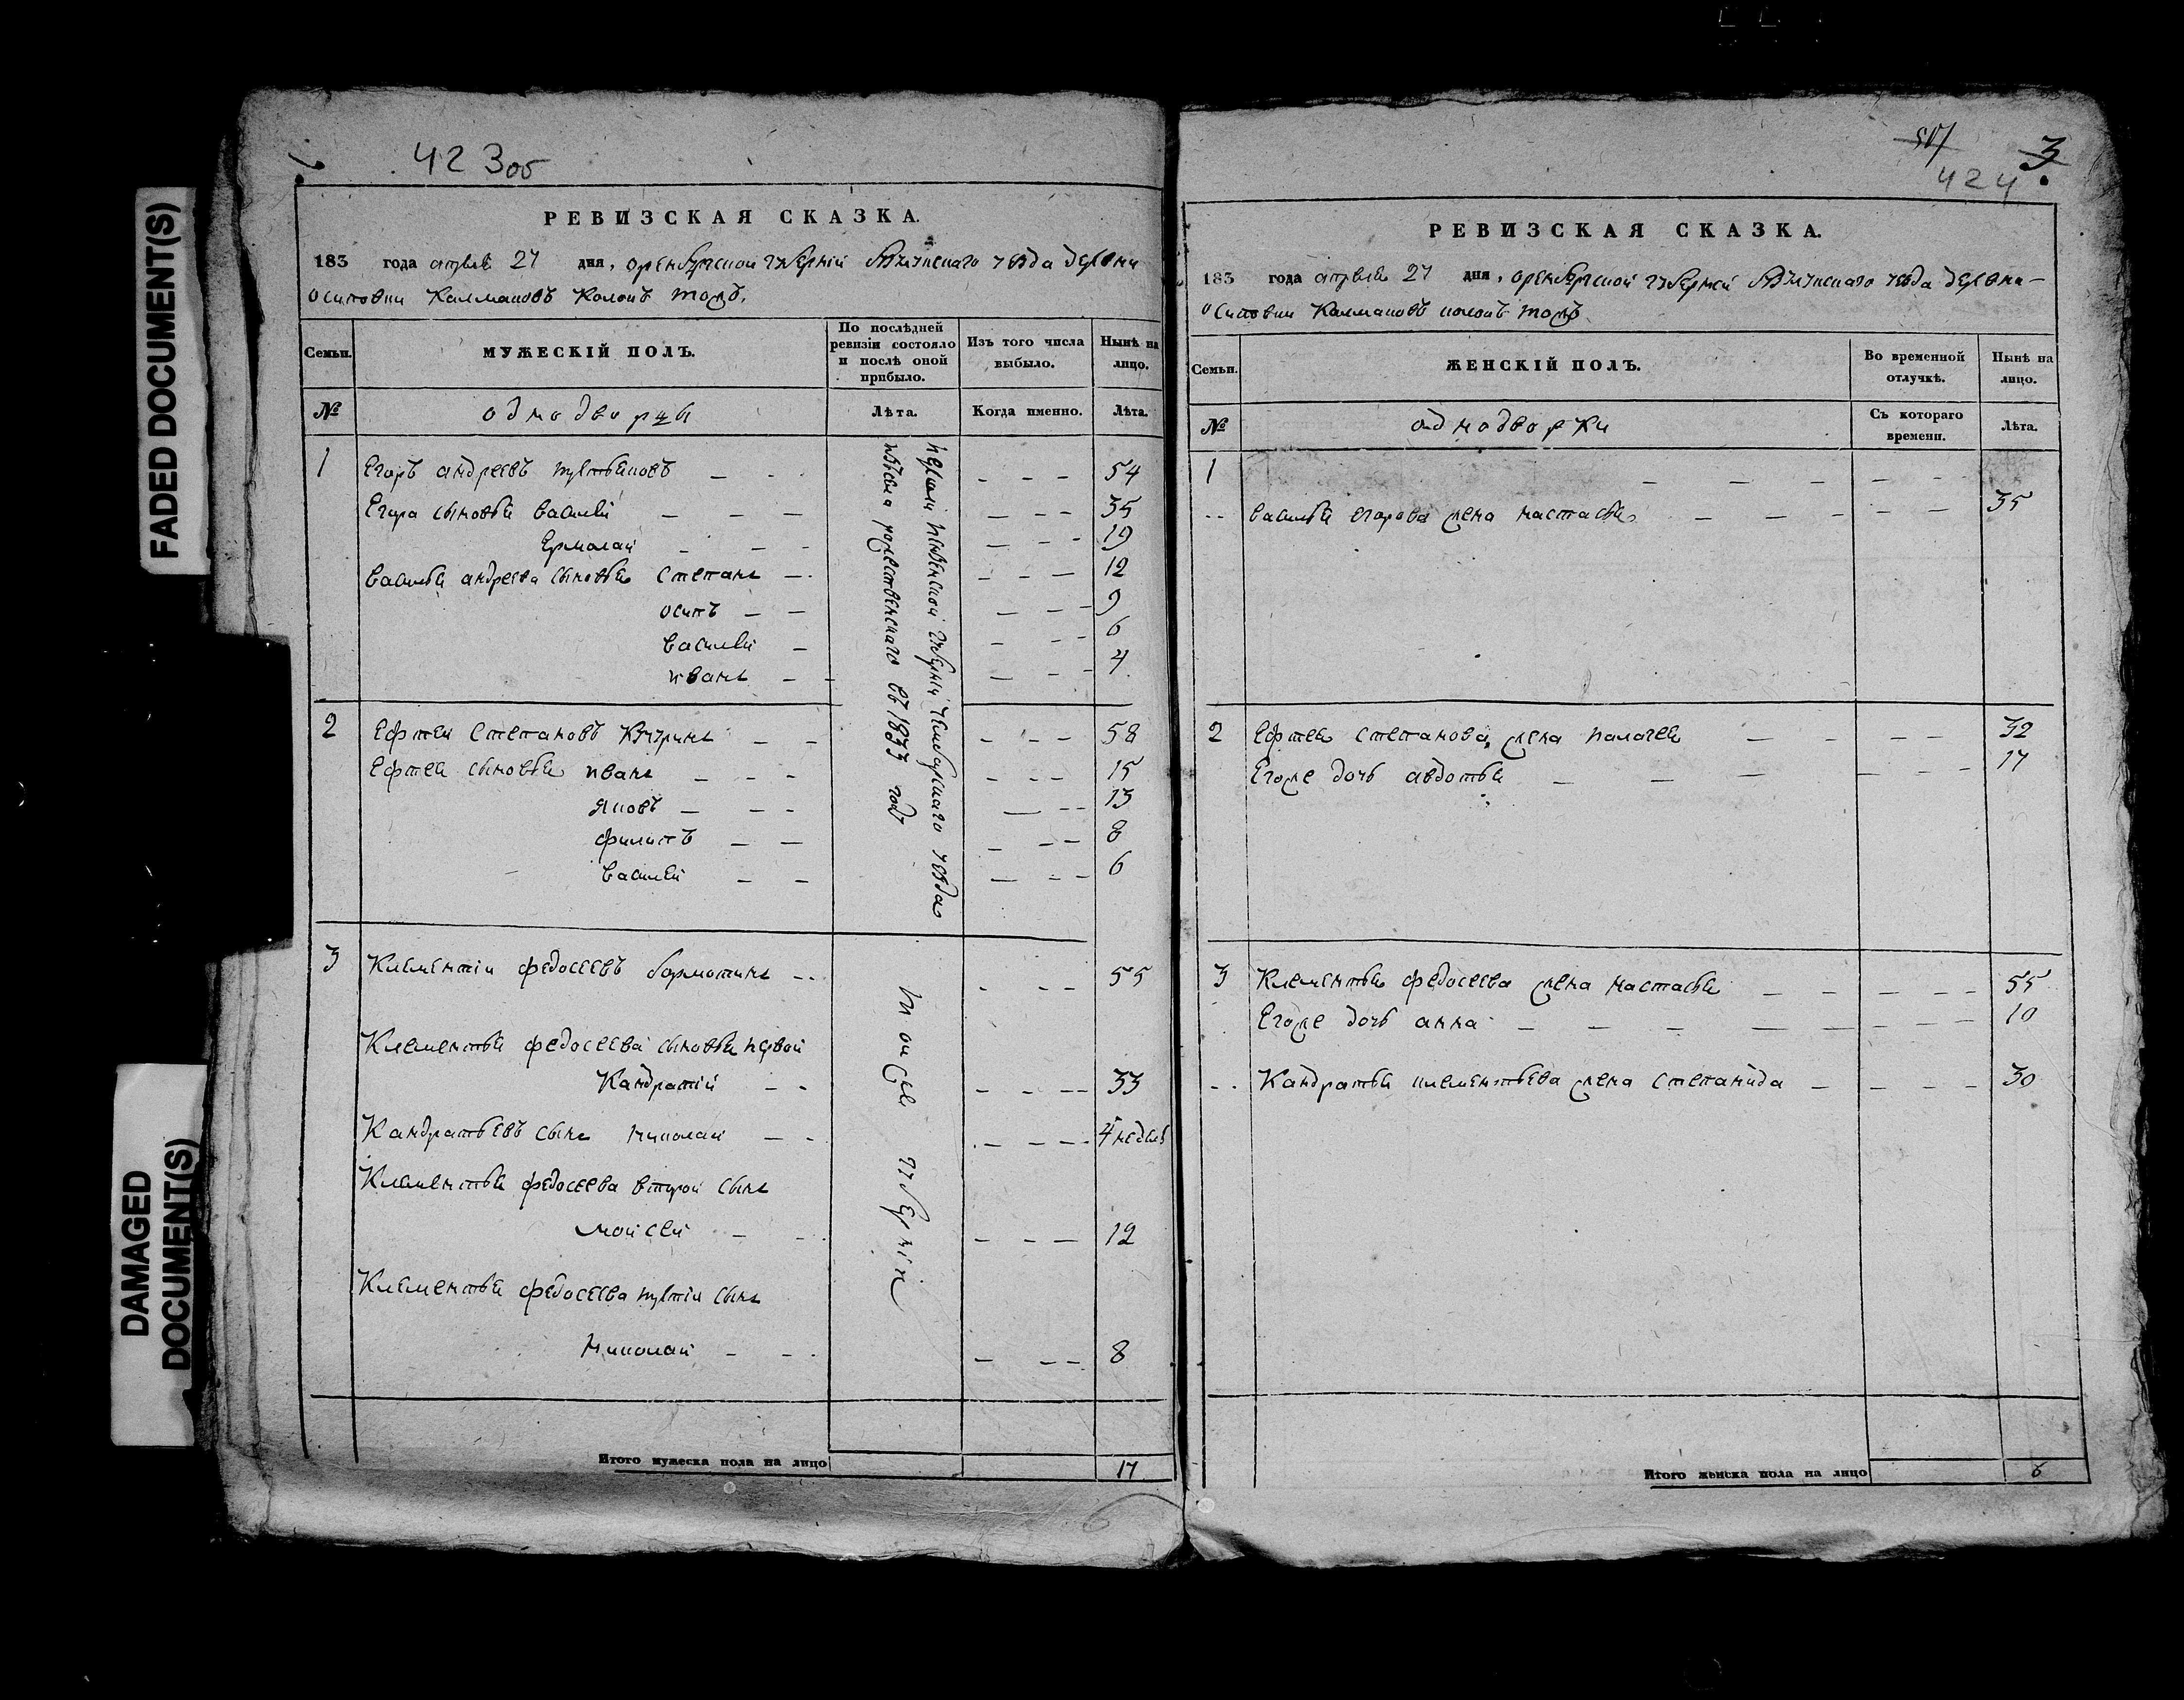 FADED DOCUMENT(S)
DAMAGED DOCUMENT(S)
423об
РЕВИЗСКАЯ СКАЗКА.
183 года апреля 27 дня, оренбургской губерніи уезда деревни
осиповки Калмаковъ Колокъ тожъ.
Семьи. МУЖЕСКІЙ ПОЛЪ. По послѣдней ревизіи состояло и послѣ оной прибыло. Изъ того числа выбыло. Нынѣ на лицо.
№ однодворцы Лѣта. Когда именно. Лѣта.
1 Егоръ андреевъ 54
Егора сыновья василей 35
Ермолай 19
василья андреева сыновья Степанъ 12
осипъ 9
василей 6
иванъ 4
2 Ефтей Степановъ 58
Ефтея сыновья иванъ 15
яковъ 13
филипъ 8
василей 6
пензенской губерніи Чембарскаго уезда
въ 1833 году
3 Клементій федосеевъ 55
Клементья федосеева сыновья первой
Кандратій 33
Кандратьевъ сынъ николай 4 недель
Клементья федосеева второй сынъ
моисей 12
Клементья федосеева третій сынъ
николай 8
той же губерніи
Итого мужеска пола на лицо 17
517 3
424
РЕВИЗСКАЯ СКАЗКА.
183 года апреля 27 дня, оренбургской губерніи уезда деревни
осиповки Калмаковъ колокъ тожъ
Семьи. ЖЕНСКІЙ ПОЛЪ. Во временной отлучкѣ. Нынѣ на лицо.
№ однодворки Съ котораго времени. Лѣта.
1
василья егорова жена настасья 35
2 Ефтея степанова жена палагея 32
Егоже дочь авдотья 17
3 Клементья федосеева жена настасья 55
Егоже дочь анна 10
Кандратья клементьева жена степанида 30
Итого женска пола на лицо 6